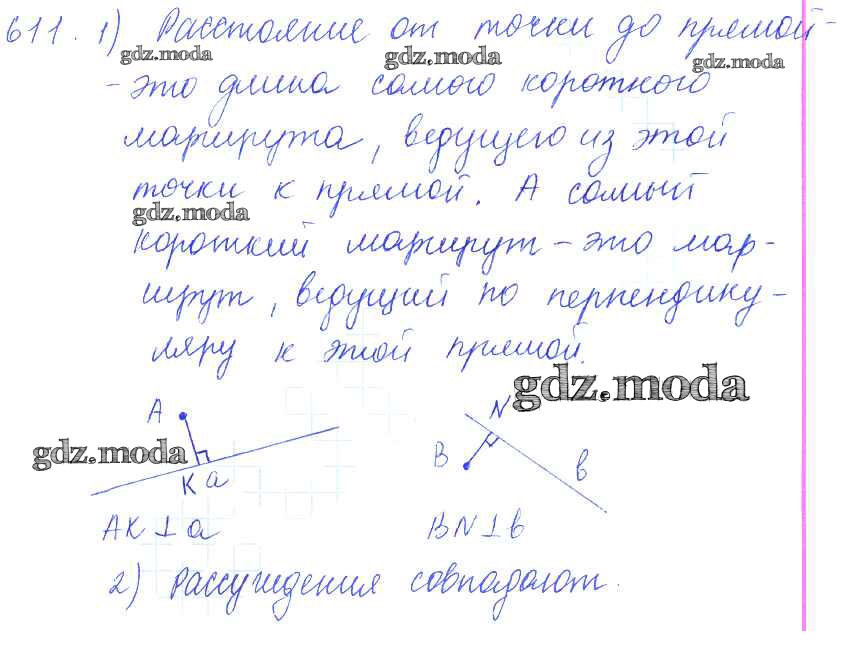 611. 1) Расстояние от точки до прямой -
gdz.moda gdz.moda gdz.moda
- это длина самого короткого
маршрута, ведущего из этой
точки к прямой. А самый
gdz.moda
короткий маршрут - это мар-
шрут, ведущий по перпендику-
ляру к этой прямой.
gdz.moda
A
N
gdz.moda
B
в
K a
AK ⊥ a
BN ⊥ в
2) Рассуждения совпадают.